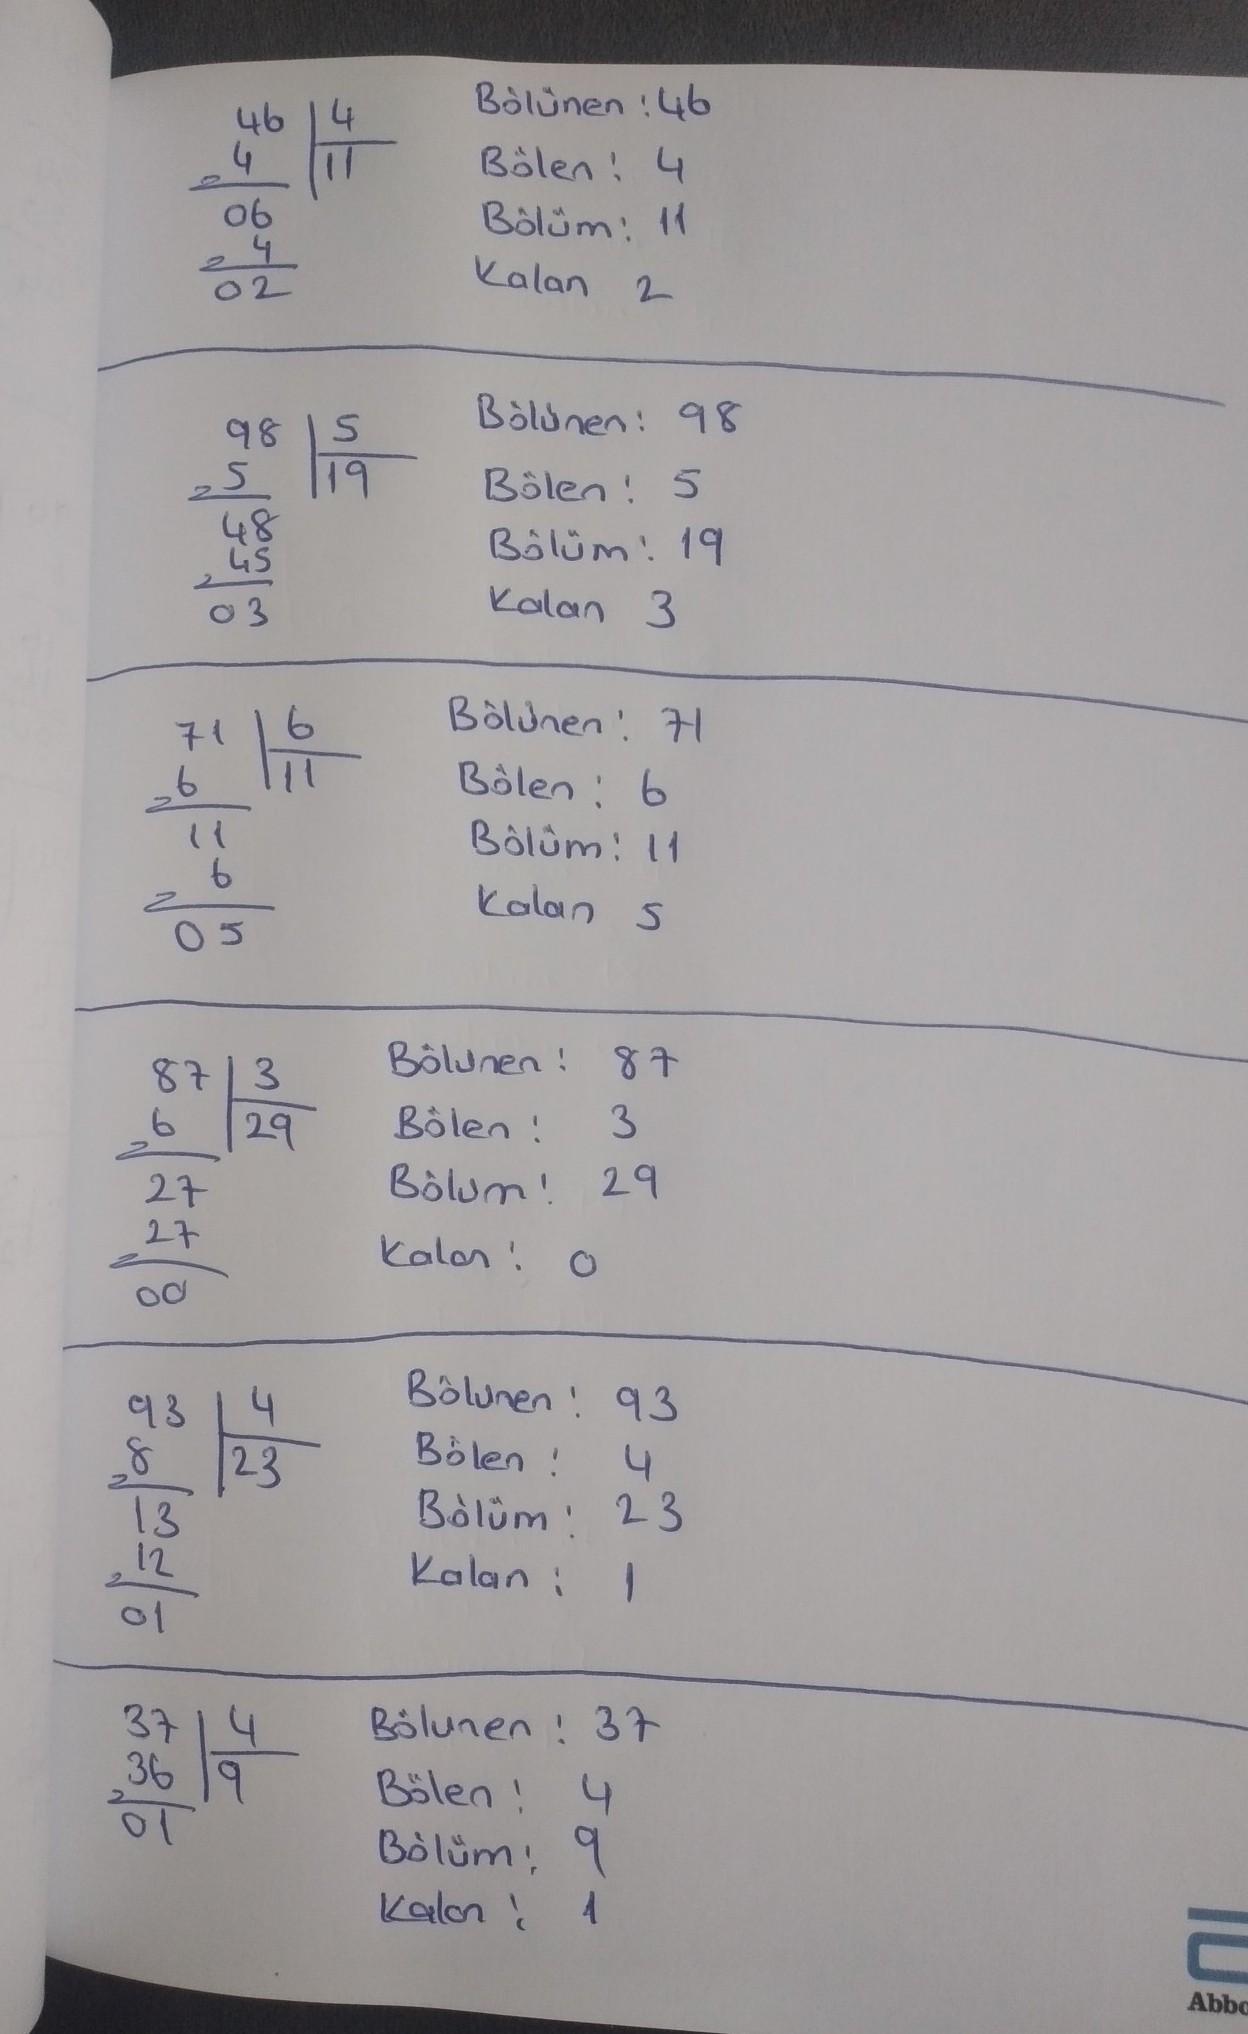 46 | 4
4 | 11
06
4
02
Bölünen : 46
Bölen : 4
Bölüm : 11
Kalan 2
98 | 5
5 | 19
48
45
03
Bölünen : 98
Bölen : 5
Bölüm : 19
Kalan 3
71 | 6
6 | 11
11
6
05
Bölünen : 71
Bölen : 6
Bölüm : 11
Kalan 5
87 | 3
6 | 29
27
27
00
Bölunen : 87
Bölen : 3
Bölum : 29
Kalan : 0
93 | 4
8 | 23
13
12
01
Bölunen : 93
Bölen : 4
Bölüm : 23
Kalan : 1
37 | 4
36 | 9
01
Bölunen : 37
Bölen : 4
Bölüm : 9
Kalan : 1